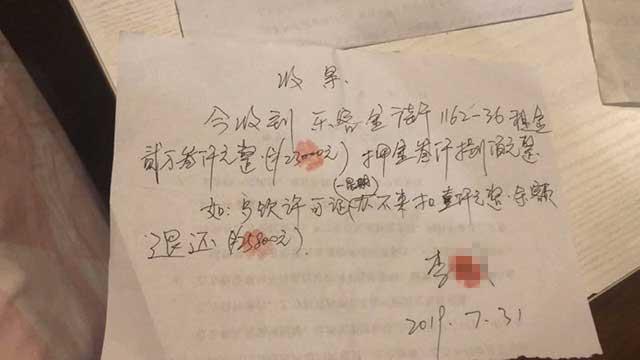 收条.
今收到乐客金街1162-36租金
贰万叁仟元整(¥23000元)押金叁仟捌佰元整.
如:歺饮许可证办不来扣壹仟元整.余额
退还(¥25800元).
李
2019.7.31